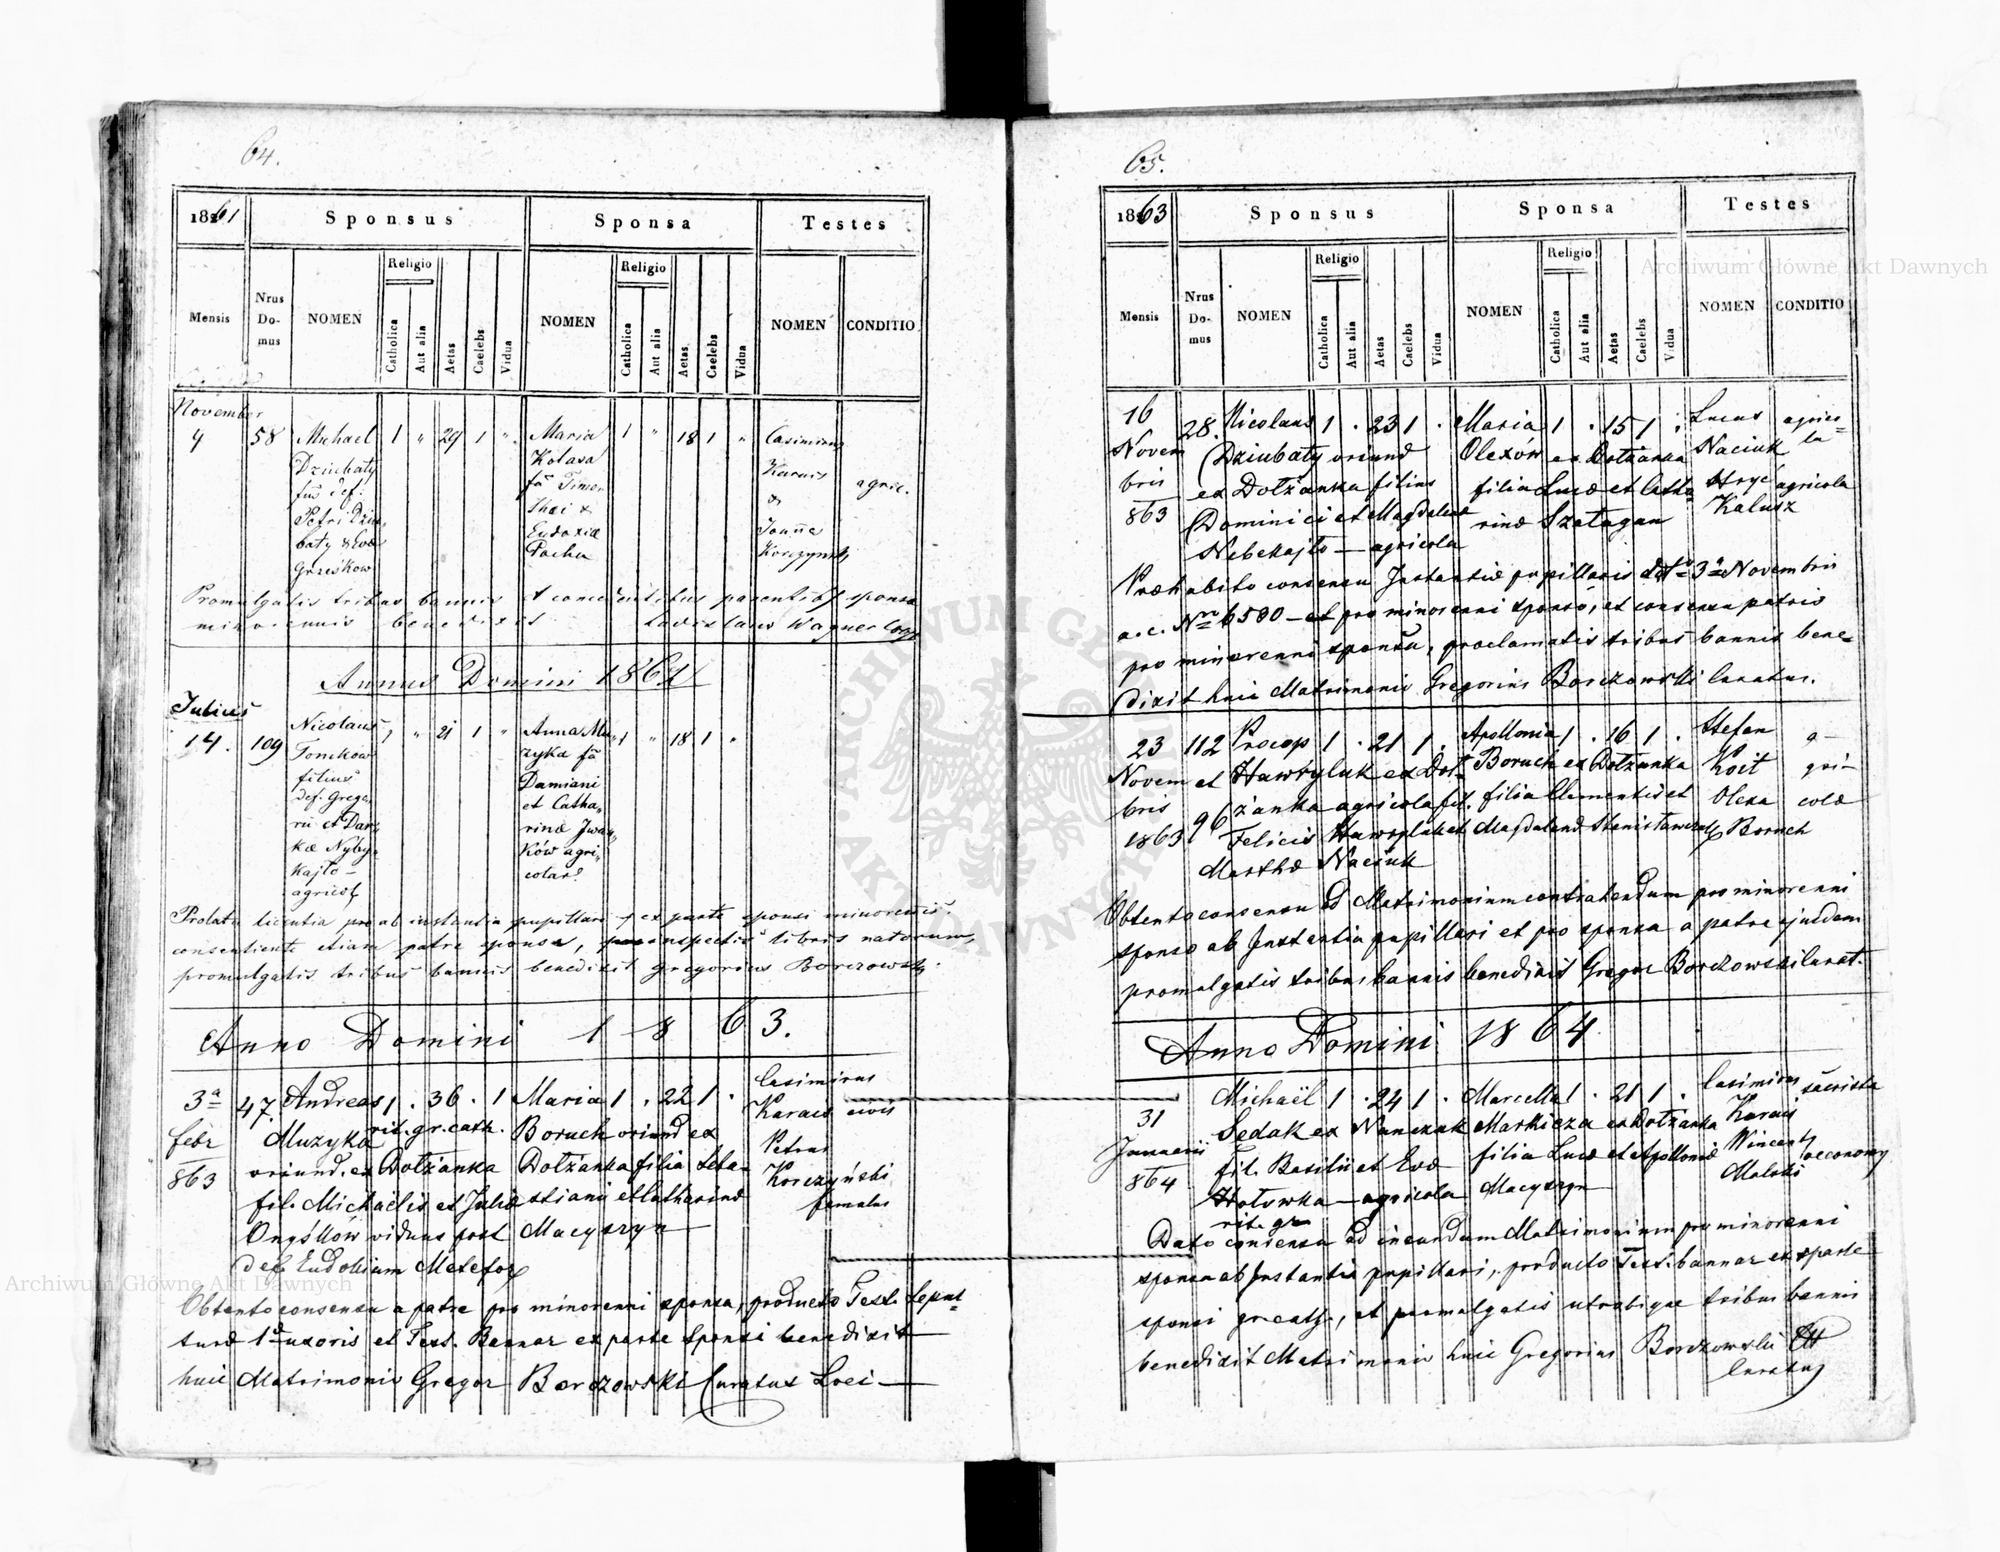 64.
1861
Sponsus
Sponsa
Testes
Mensis
Nrus Do- mus
NOMEN
Religio
Catholica
Aut alia
Aetas
Caelebs
Vidua
NOMEN
Religio
Catholica
Aut alia
Aetas
Caelebs
Vidua
NOMEN
CONDITIO
November
4 58 Michael 1 " 29 1 "
Dziubaty
fius def:
Petri Dziu,
baty & Evæ
Grzeskow
Maria 1 " 18 1 "
Kolasa
fa Timo-
thei &
Eudoxiæ
Pacha
Casimirus
Karais
&
Joanne
Korczynski
agric.
Promulgatis tribus bannis & parentibq sponsa
minorennis benedixit Ladislaus Wagner
Annus Domini 1862
Julius
14. 109
Nicolaus 1 " 21 1 "
Tomkow
filius
def. Grego,
rii et Dar,
kæ Nyby,
kajlo –
agricol
Anna Mu, 1 " 18 1 "
zyka fa
Damiani
et Catha,
rinæ Iwan,
ków agri,
colar.
Prolata licentia pro ab instantia pupillari ex parte sponsi minorennis
consentiente etiam patre sponsa, inspectis libris natorum,
promulgatis tribus bannis benedixit Gregorius Borczowski.
Anno Domini 1863.
3a
febr
863
47. Andreas 1 . 36 . 1
rit. gr. cath.
Muzyka
oriund. ex Dołżanka
fil. Michaëlis et Juliæ
viduus post
def. Eudokiam
Maria 1 . 22 1 .
Boruch oriund ex
Dołżanka filia Seba-
stiani et Catharinæ
Macyszyn
Casimirus
Karais civis
Petrus
Korczyński
famulus
Obtento consensu a patre pro minorenni sponsa, producto Test. Sepul-
turæ 1æ uxoris et Test. Bannor ex parte Sponsi benedixit
huic Matrimonio Gregor Borczowski Curatus Loci
65.
1863
Sponsus
Sponsa
Testes
Mensis
Nrus Do- mus
NOMEN
Religio
Catholica
Aut alia
Aetas
Caelebs
Vidua
NOMEN
Religio
Catholica
Aut alia
Aetas
Caelebs
Vidua
NOMEN
CONDITIO
16
Novem
bris
863
28. Nicolaus 1 . 23 1 .
Dziubaty oriund
ex Dołżanka filius
Dominici et Magdalenæ
Nebekajło — agricola
Maria 1 . 15 1 .
Olexów ex Dołżanka
filia Lucæ et Catha-
rinæ Szatagan
Lucas agrico=
Naciuk la
Hryć agricola
Kalusz
Præhabito consensu Instantiæ pupillaris 3a Novembris
a.c. Nro 6580 – et pro minorenni sponso, et consensu patris
pro minorenni sponsa, proclamatis tribus bannis bene-
dixit huic Matrimonio Gregorius Borczowski Curatus.
23
Novem
bris
1863
112
et
96
Procop 1 . 21 1 .
Hawryluk ex Doł-
żanka agricola fil.
Felicis Hawryluk et
Marthæ Naciuk
Apollonia 1 . 16 1 .
Boruch ex Dołżanka
filia Clementis et
Magdalenæ
Stefan a-
Koit gri-
Olexa colæ
Boruch
Obtento consensu ad Matrimonium contrahendum pro minorenni
sponso ab Instantia pupillari et pro sponsa a patre ejusdem
promulgatis tribus bannis benedixit Gregor Borczowski Curat.
Anno Domini 1864
31
Januarii
864
Michaël 1 . 24 1 .
Sedak ex Nanczak
fil. Basilii et Evæ
Hołowka — agricola
rit. gr
Marcella 1 . 21 1 .
Markicza ex Dołżanka
filia Lucæ et Apolloniæ
Macyszyn
Casimirus sacrista
Karais
Wincenty oeconomy
Malski
Dato consensu ad ineundum Matrimonium pro minorenni
sponsa ab Instantia pupillari, producto Test. bannor ex parte
sponsi, et promulgatis utrobique tribus bannis
benedixit Matrimonio huic Gregorius Borczowski
Curatus
Archiwum Główne Akt Dawnych
Archiwum Główne Akt Dawnych
ARCHIWUM GŁÓWNE AKT DAWNYCH